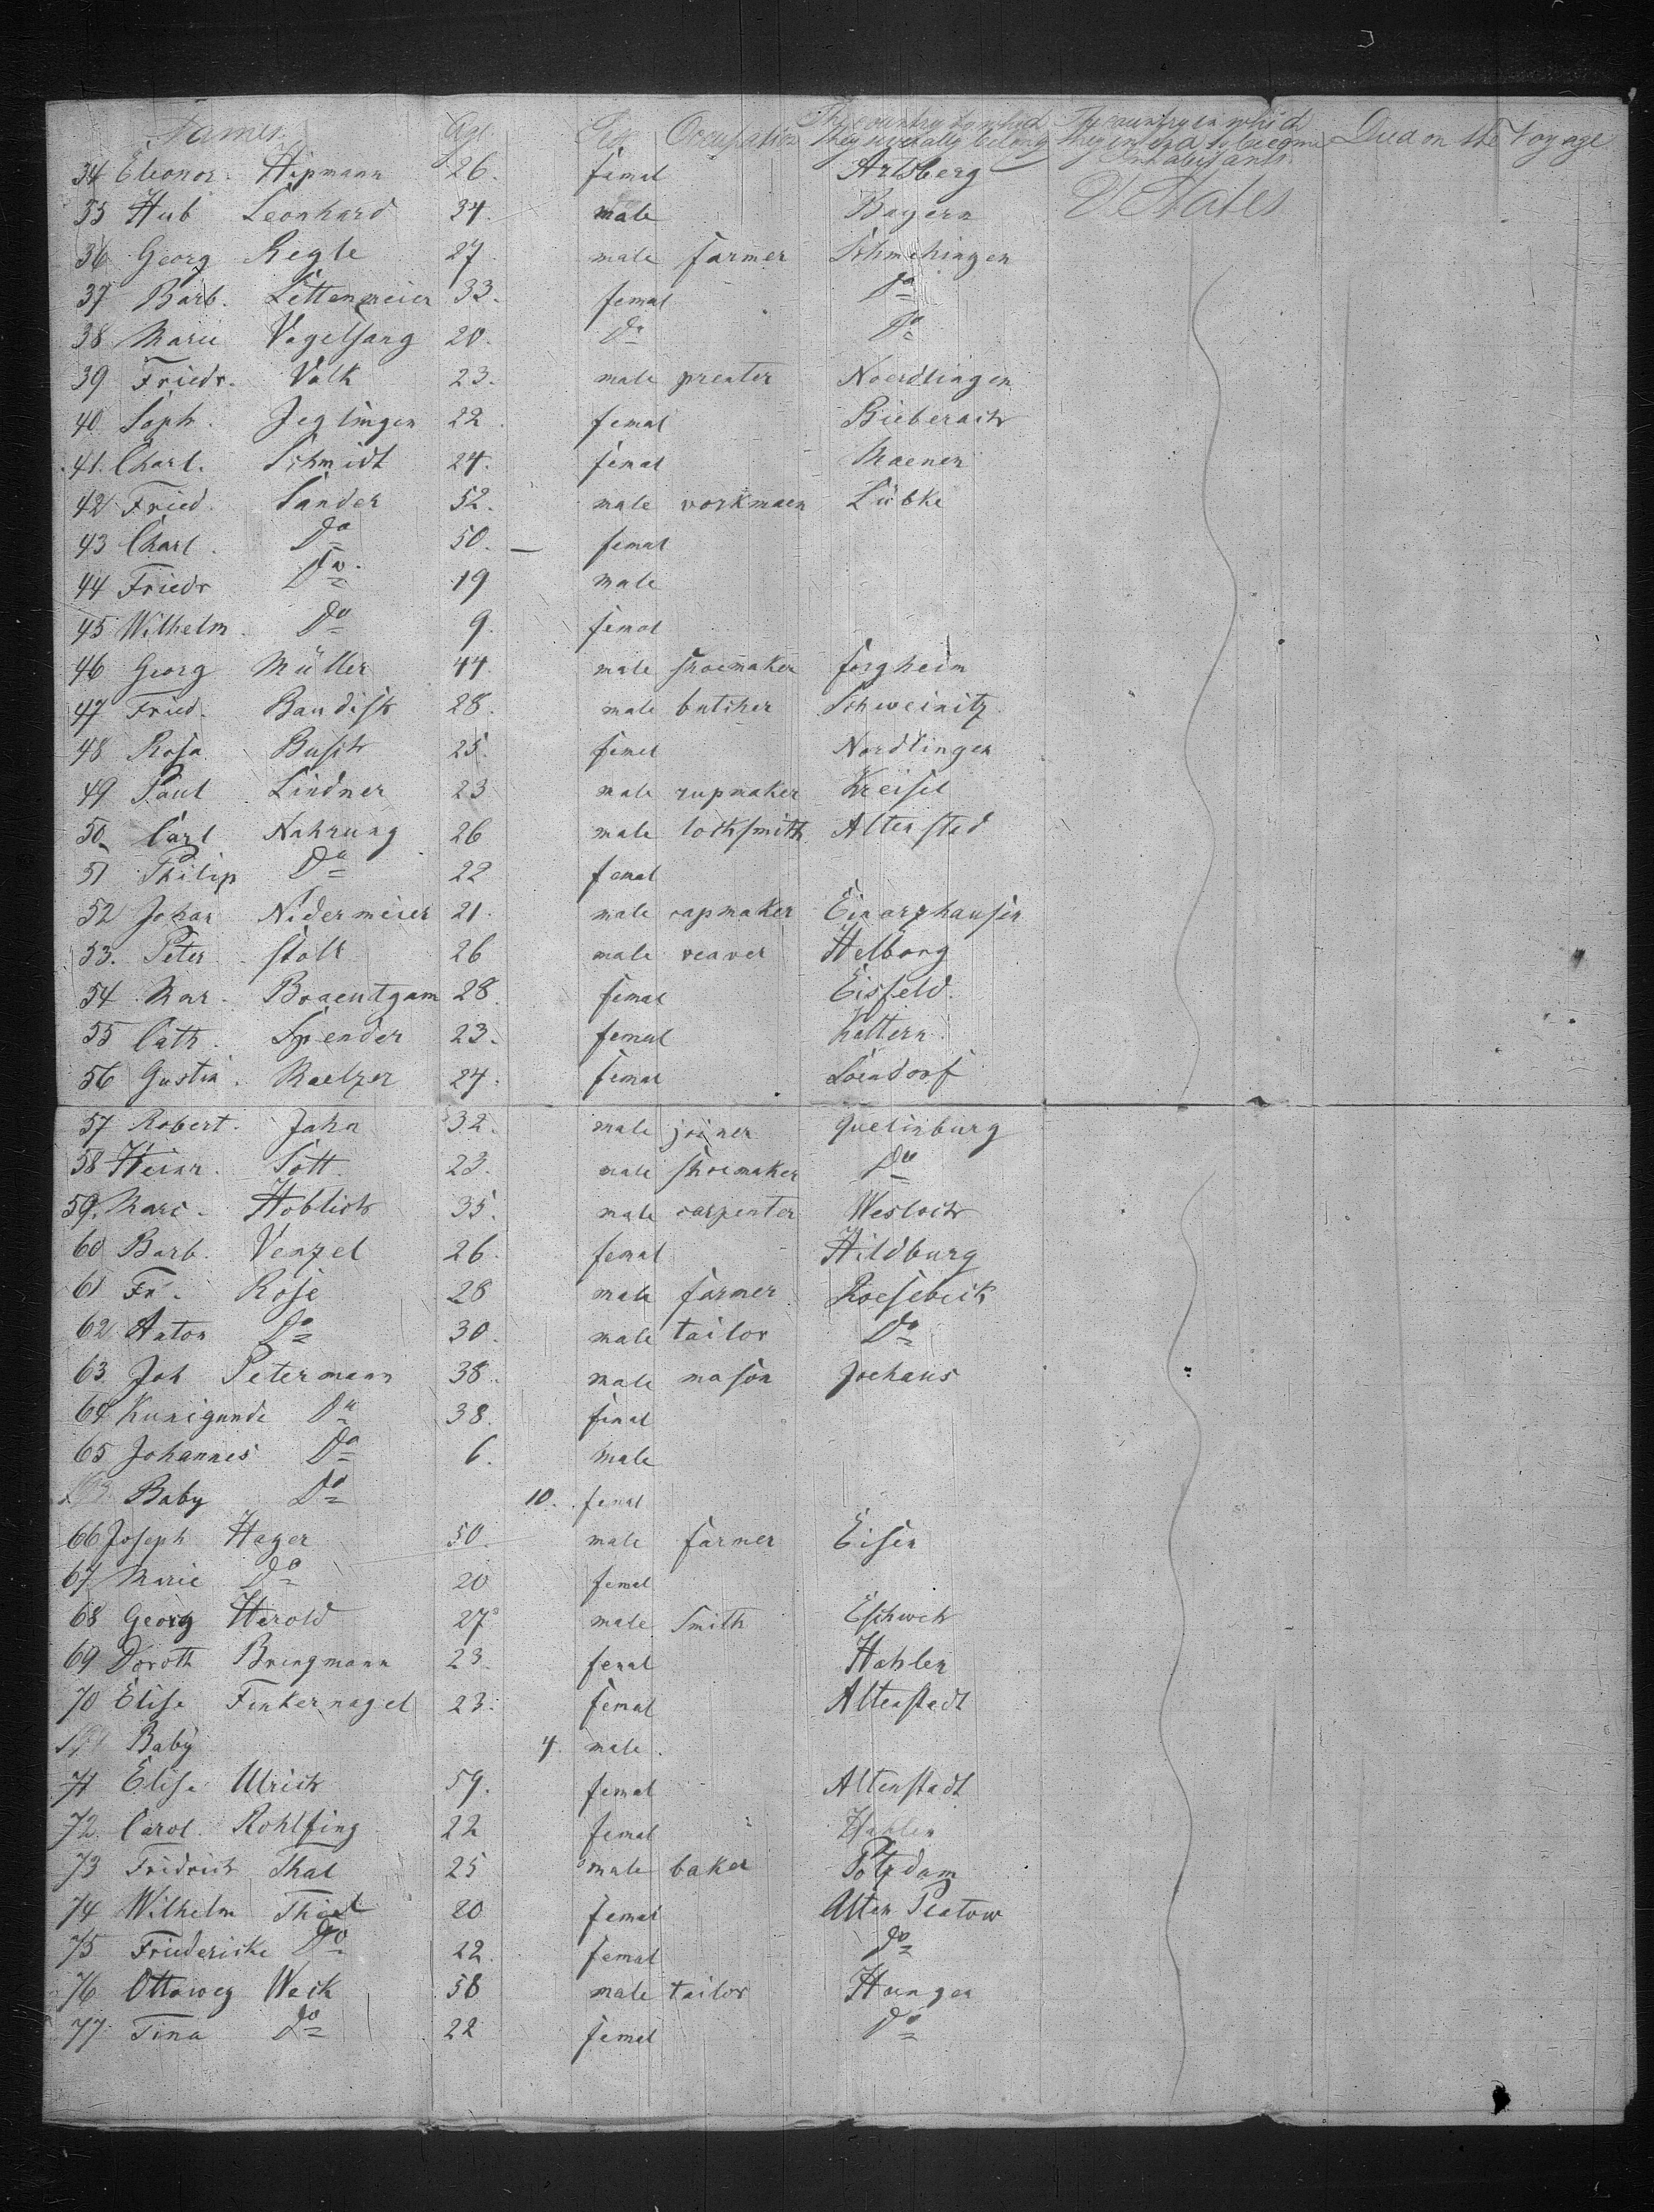 Names. Age. Sex Occupation The country to which they severally belong The country in which they intend to become inhabitants. Died on the Voyage
34 Eleonor. Hipmann 26. femal Arlsberg U. States
35 Hub Leonhard 34. male Bayern
36 Georg Regle 27 male farmer Schmehingen
37 Barb. Lettenmeier 33. femal Do
38 Marie Vogelsang 20. Do Do
39 Friedr. Valk 23. male preater Noerdlingen
40 Soph. Jeglingen 22. femal Bieberach
41. Charl. Schmidt 24. femal Maenen
42 Fried. Sander 52. male workmaen Lübke
43 Charl. Do 50. — femal
44 Friedr Do. 19 male
45 Wilhelm. Do 9. femal
46 Georg Müller 44. male shoemaker forgheim
47 Fried. Baudisch 28. male butcher Schweinitz
48 Rosa Busch 25. femel Nordlingen
49 Paul Lindner 23 male rupmaker Kreisel
50 Carl Nahrung 26 male locksmith Altensted
51 Philip Do 22 femal
52 Johan Nidermeier 21. male capmaker Einarzhausen
53. Peter Stoll 26 male veaver Helborg
54 Mar. Braeutgam 28. femal Eisfeld.
55 Cath. Spender 23. femal Kaltern.
56 Gustin. Maelzer 24. femal Loendorf
57 Robert. Jahn 32. male joiner Quelinburg
58 Heinr. Sott 23. male shoemaker Do
59. Marc. Hoblich 35. male carpenter Wesloch
60 Barb. Venzel 26. femal Hildburg
61 Fr. Rose 28 male farmer Roesebeck
62 Anton Do 30. male tailor Do
63. Joh Petermann 38. male mason Joehaus
64 Kunigunde Do 38. femal
65 Johannes Do 6. male
Baby Do 10. femal
66 Joseph Hager 50. male farmer Eisen
67 Marie Do 20 femal
68 Georg Herold 27 male Smith Eschweh
69 Doroth Bringmann 23. femal Hahlen
70 Elise Finkernagel 23. femal Altenstadt
Baby 4. male.
71 Elise Ulrich 59. femal Altenstadt
72. Carol. Rohlfing 22 femal Hahlen
73 Fridrich Thal 25 male baker Potzdam
74 Wilhelm Thiel 20 femal Alten Plalow
75 Friedericke Do 22. femal Do
76 Ottoweg Weck 58 male tailor Hungen
77 Tina Do 22 femal Do